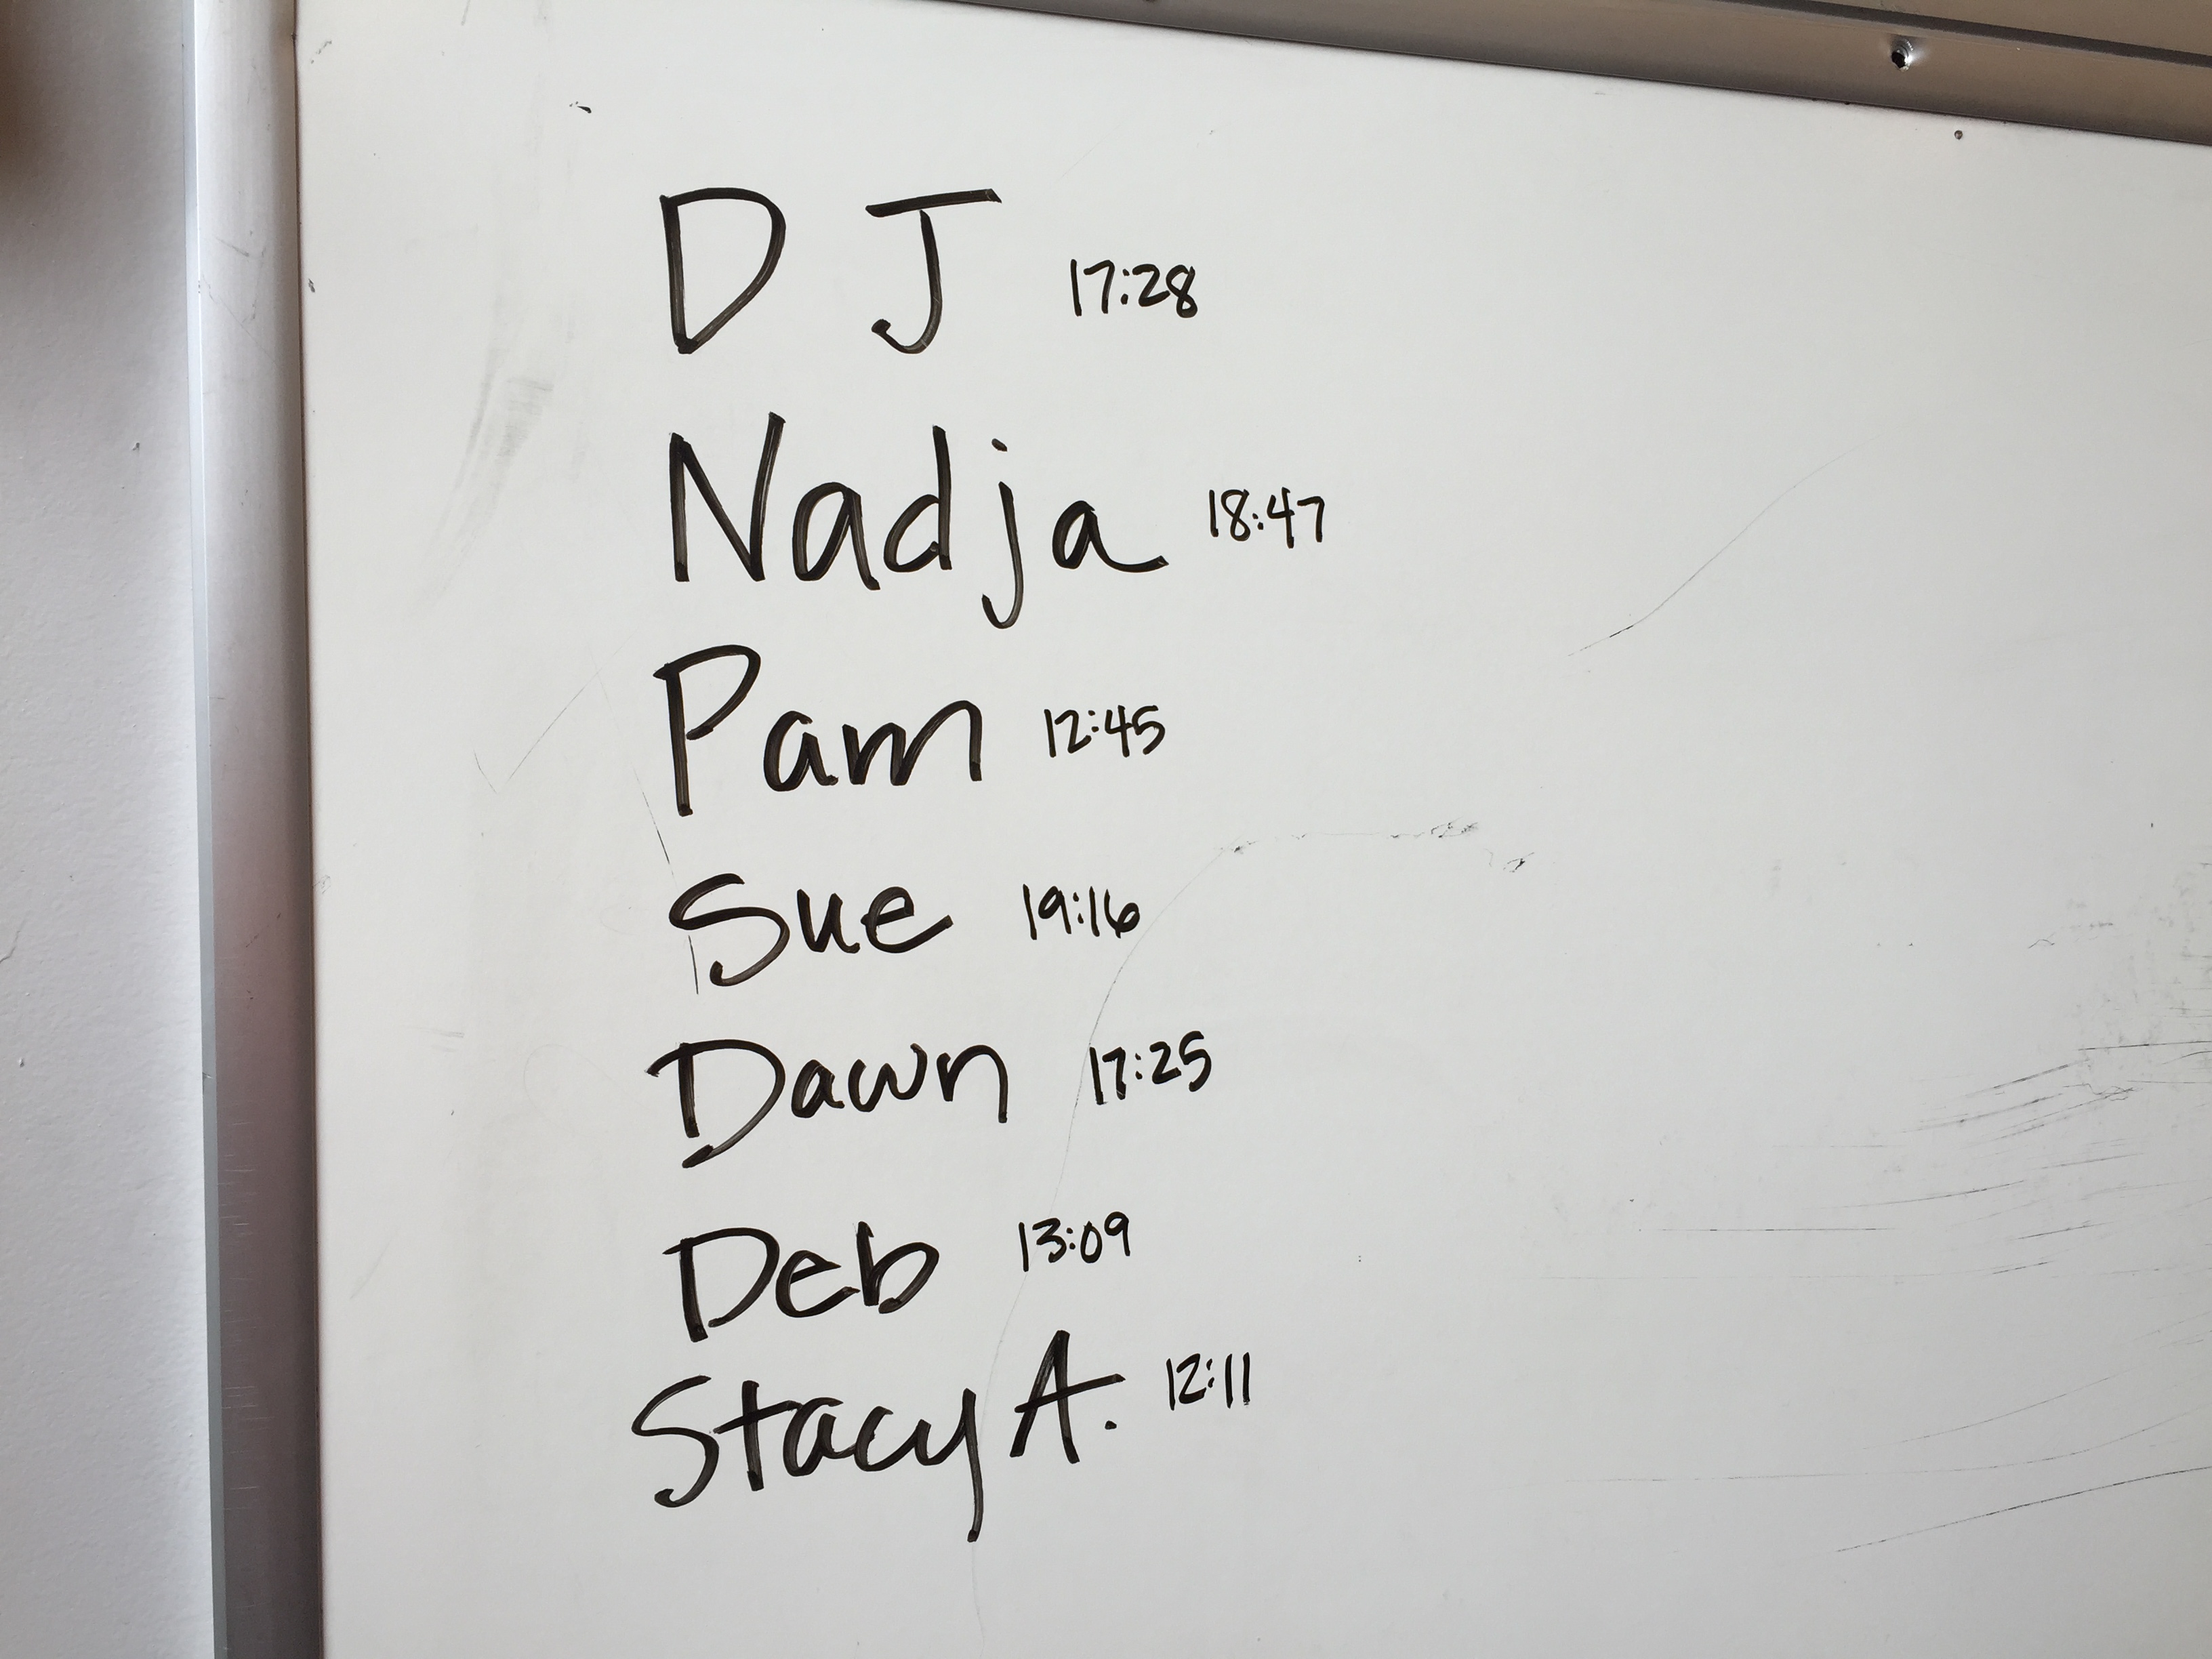 D J 17:28
Nadja 18:47
Pam 12:45
Sue 19:16
Dawn 17:25
Deb 13:09
Stacy A. 12:11